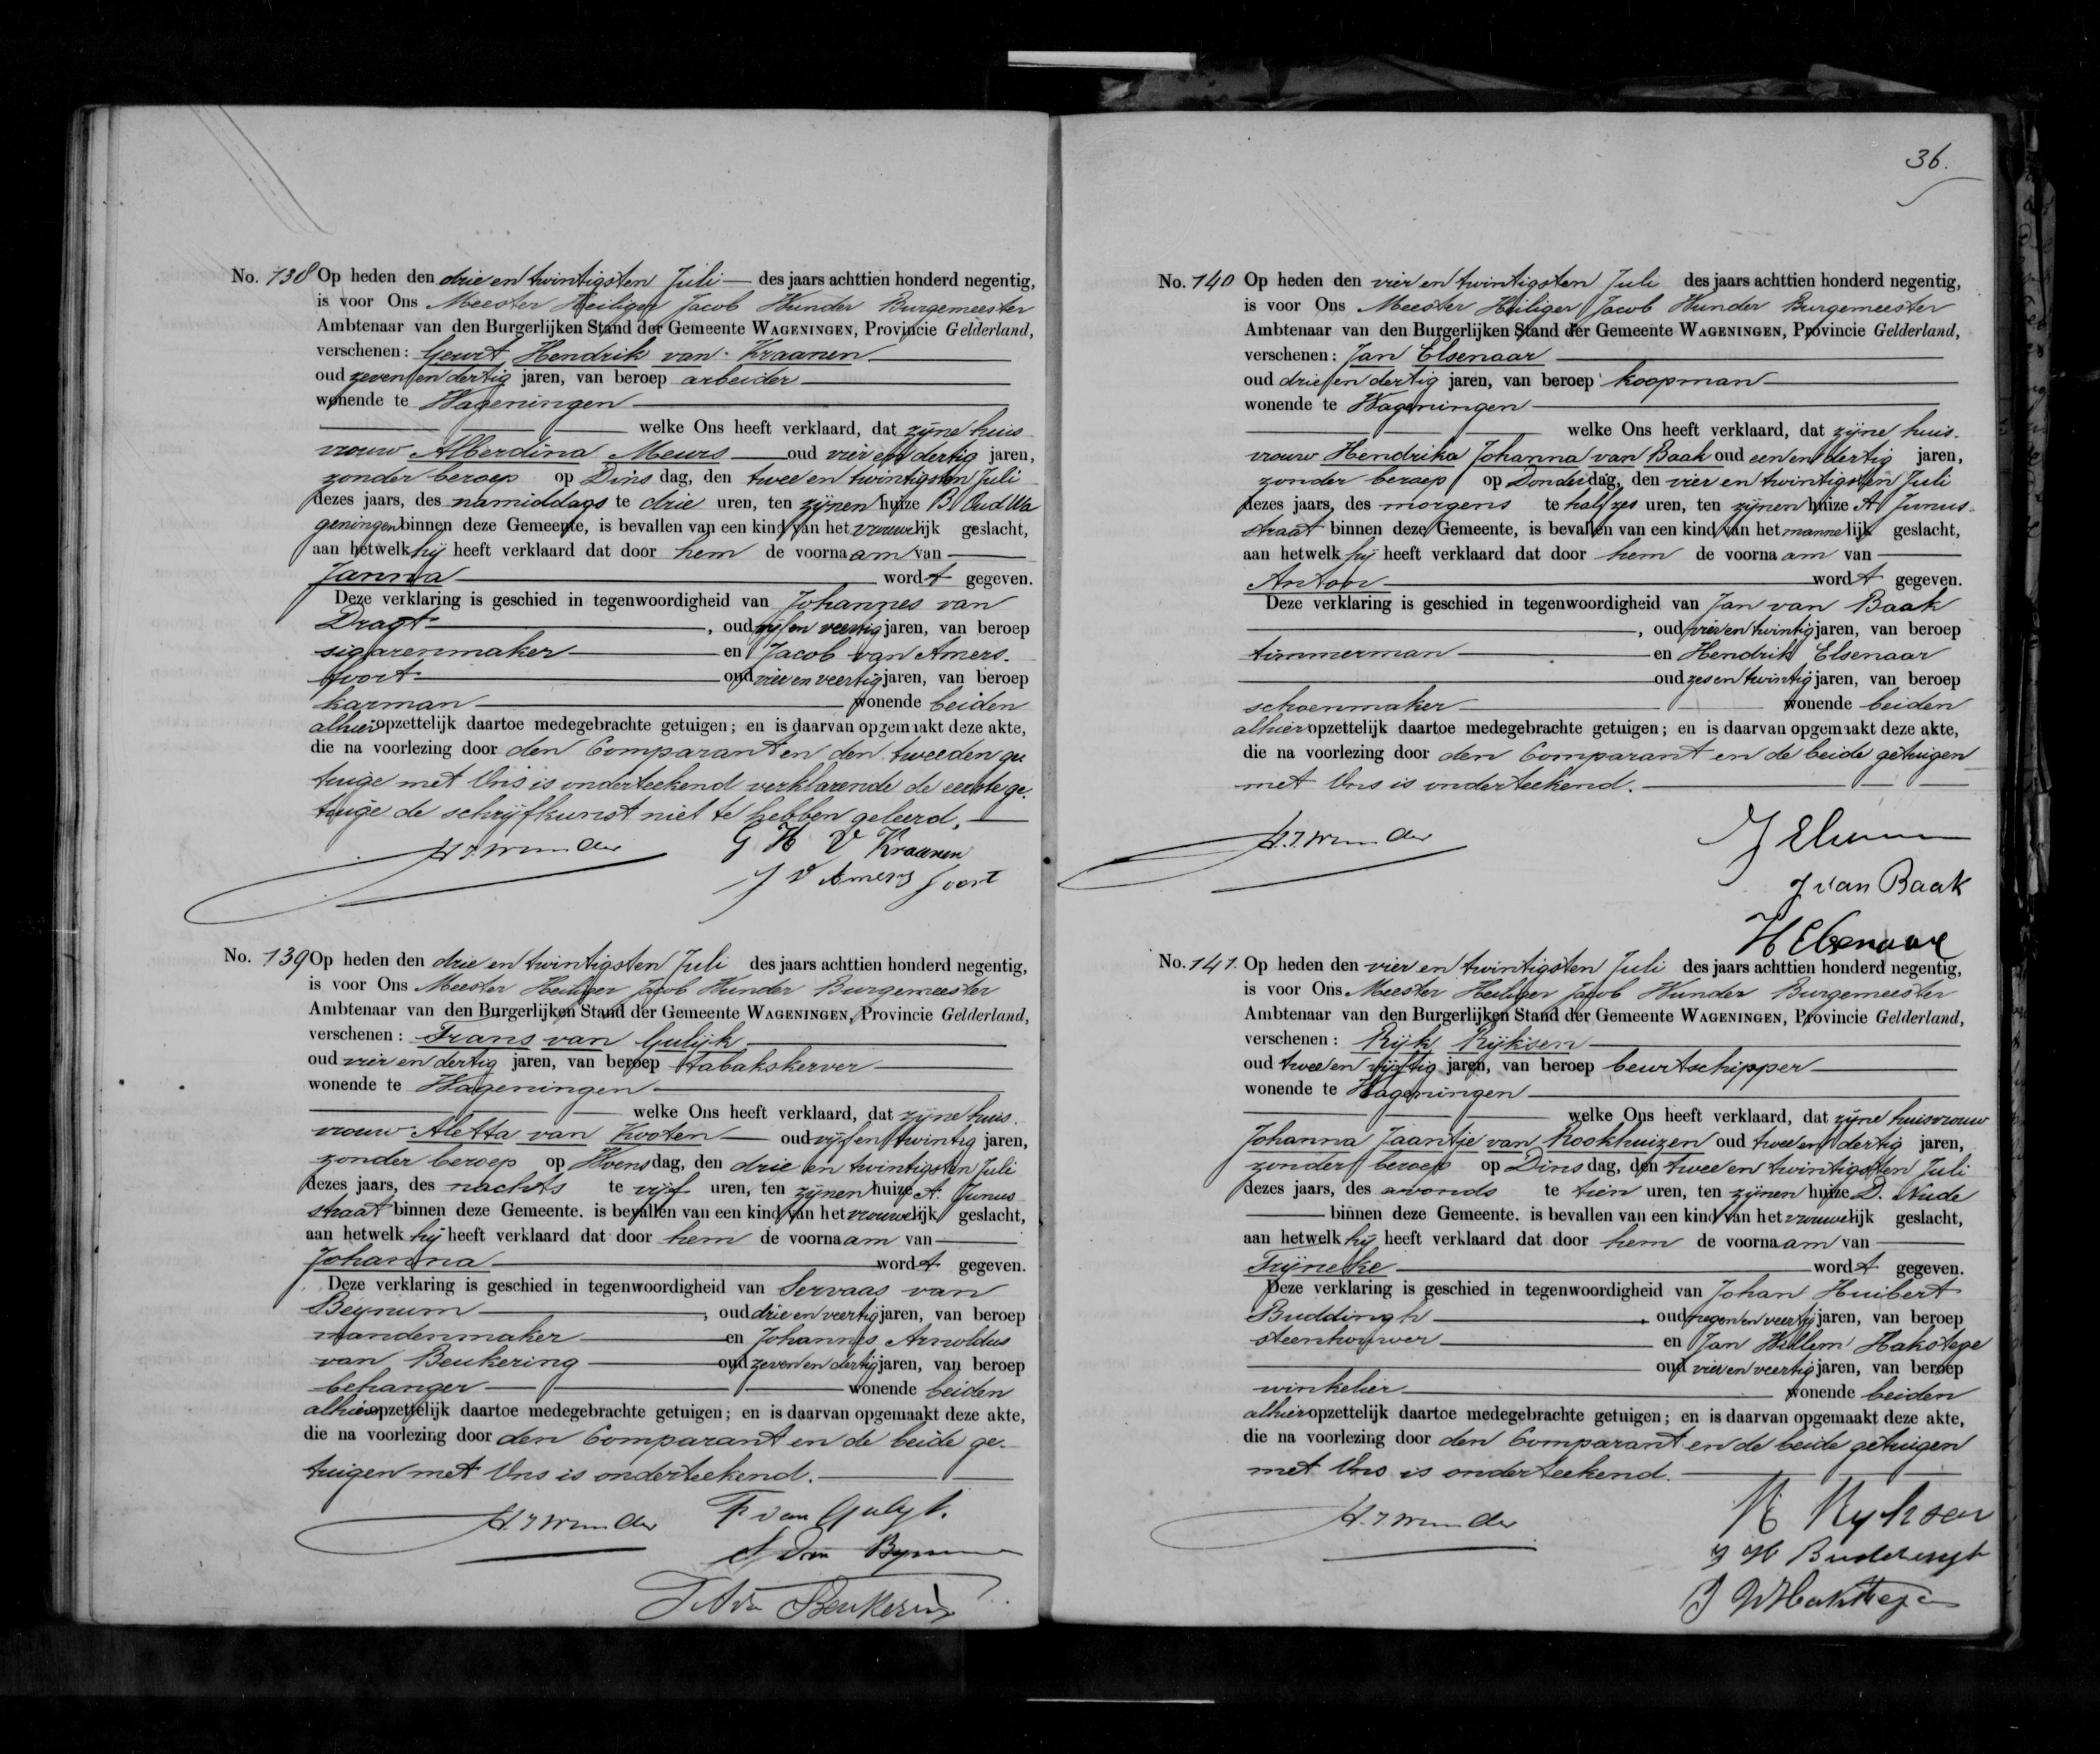 No. 138 Op heden den drie en twintigsten Juli des jaars achttien honderd negentig,
is voor Ons Meester Heiliger Jacob Hunder Burgemeester
Ambtenaar van den Burgerlijken Stand der Gemeente WAGENINGEN, Provincie Gelderland,
verschenen: Gerrit Hendrik van Kraanen
oud zeven en dertig jaren, van beroep arbeider
wonende te Wageningen
welke Ons heeft verklaard, dat zijne huis
vrouw Alberdina Meurs oud vier en dertig jaren,
zonder beroep op Dinsdag, den twee en twintigsten Juli
dezes jaars, des namiddags te drie uren, ten zijnen huize B Oud Wa
geningen binnen deze Gemeente, is bevallen van een kind van het vrouwelijk geslacht,
aan hetwelk hij heeft verklaard dat door hem de voornaam van
Janna wordt gegeven.
Deze verklaring is geschied in tegenwoordigheid van Johannes van
Dragt, oud vijf en veertig jaren, van beroep
sigarenmaker en Jacob van Amers-
foort oud vier en veertig jaren, van beroep
karman wonende beiden
alhier opzettelijk daartoe medegebrachte getuigen; en is daarvan opgemaakt deze akte,
die na voorlezing door den Comparant en den tweeden ge
tuige met Ons is onderteekend verklarende de eerste ge-
tuige de schrijfkunst niet te hebben geleerd.
H.J. Hunder G H V Kraanen
J V Amersfoort
No. 139 Op heden den drie en twintigsten Juli des jaars achttien honderd negentig,
is voor Ons Meester Heiliger Jacob Hunder Burgemeester
Ambtenaar van den Burgerlijken Stand der Gemeente WAGENINGEN, Provincie Gelderland,
verschenen: Frans van Gulijk
oud vier en dertig jaren, van beroep tabakskerver
wonende te Wageningen
welke Ons heeft verklaard, dat zijne huis-
vrouw Aletta van Kooten oud vijf en twintig jaren,
zonder beroep op Woensdag, den drie en twintigsten Juli
dezes jaars, des nachts te vijf uren, ten zijnen huize A. Junus
straat binnen deze Gemeente. is bevallen van een kind van het vrouwelijk geslacht,
aan hetwelk hij heeft verklaard dat door hem de voornaam van
Johanna wordt gegeven.
Deze verklaring is geschied in tegenwoordigheid van Servaas van
Beynum, oud drie en veertig jaren, van beroep
mandenmaker en Johannes Arnoldus
van Beukering oud zeven en dertig jaren, van beroep
behanger wonende beiden
alhier opzettelijk daartoe medegebrachte getuigen; en is daarvan opgemaakt deze akte,
die na voorlezing door den Comparant en de beide ge-
tuigen met Ons is onderteekend.
H.J. Hunder F van Gulyk.
S van Bynum
J A van Beukering
36.
No. 140 Op heden den vier en twintigsten Juli des jaars achttien honderd negentig,
is voor Ons Meester Heiliger Jacob Hunder Burgemeester
Ambtenaar van den Burgerlijken Stand der Gemeente WAGENINGEN, Provincie Gelderland,
verschenen: Jan Elsenaar
oud drie en dertig jaren, van beroep koopman
wonende te Wageningen
welke Ons heeft verklaard, dat zijne huis-
vrouw Hendrika Johanna van Baak oud een en dertig jaren,
zonder beroep op Donderdag, den vier en twintigsten Juli
dezes jaars, des morgens te half zes uren, ten zijnen huize A Junus-
straat binnen deze Gemeente, is bevallen van een kind van het mannelijk geslacht,
aan hetwelk hij heeft verklaard dat door hem de voornaam van
Anton wordt gegeven.
Deze verklaring is geschied in tegenwoordigheid van Jan van Baak
, oud vier en twintig jaren, van beroep
timmerman en Hendrik Elsenaar
oud zes en twintig jaren, van beroep
schoenmaker wonende beiden
alhier opzettelijk daartoe medegebrachte getuigen; en is daarvan opgemaakt deze akte,
die na voorlezing door den Comparant en de beide getuigen
met Ons is onderteekend.
H.J. Hunder
J van Baak
H Elsenaar
No. 141. Op heden den vier en twintigsten Juli des jaars achttien honderd negentig,
is voor Ons Meester Heiliger Jacob Hunder Burgemeester
Ambtenaar van den Burgerlijken Stand der Gemeente WAGENINGEN, Provincie Gelderland,
verschenen: Rijk Rijksen
oud twee en vijftig jaren, van beroep beurtschipper
wonende te Wageningen
welke Ons heeft verklaard, dat zijne huisvrouw
Johanna Jaantje van Rookhuizen oud twee en dertig jaren,
zonder beroep op Dinsdag, den twee en twintigsten Juli
dezes jaars, des avonds te tien uren, ten zijnen huize D. Nude
binnen deze Gemeente. is bevallen van een kind van het vrouwelijk geslacht,
aan hetwelk hij heeft verklaard dat door hem de voornaam van
Trijneke wordt gegeven.
Deze verklaring is geschied in tegenwoordigheid van Johan Huibert
Buddingh, oud negen en veertig jaren, van beroep
steenhouwer en Jan Willem Hakstege
oud vier en veertig jaren, van beroep
winkelier wonende beiden
alhier opzettelijk daartoe medegebrachte getuigen; en is daarvan opgemaakt deze akte,
die na voorlezing door den Comparant en de beide getuigen
met Ons is onderteekend.
H.J. Hunder R Ryksen
J H Buddingh
J W Hakstege